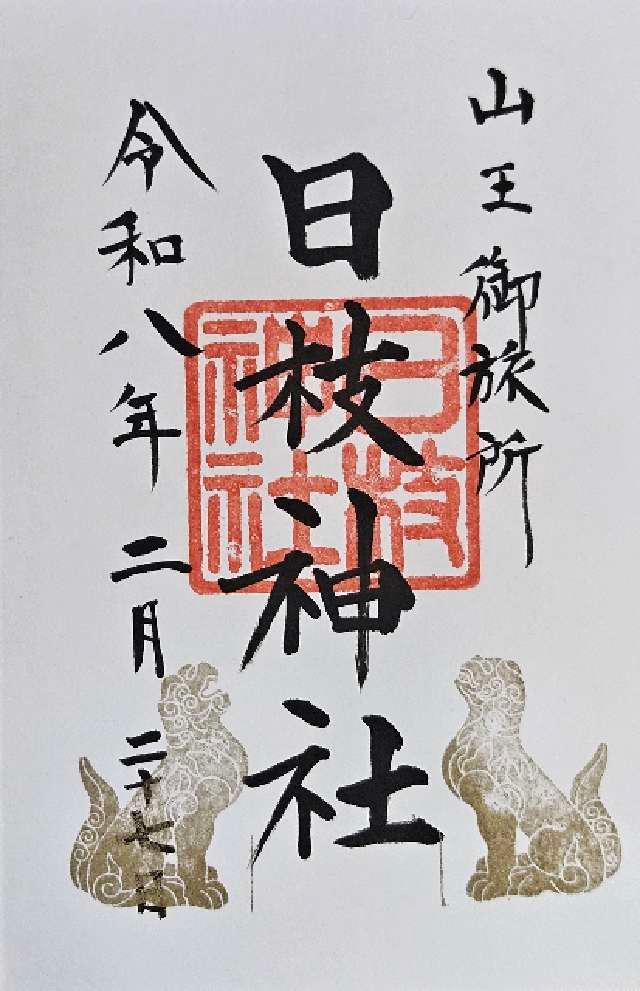 山王御旅所
日枝神社
日枝神社
令和八年二月二十七日